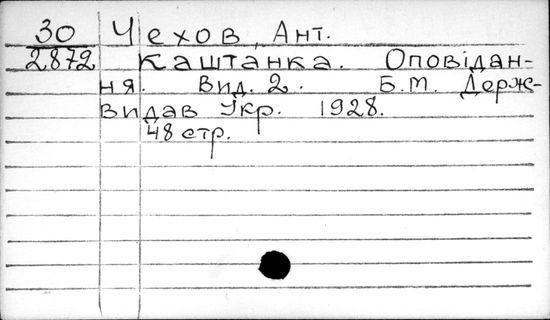 30 Чехов, Ант.
2872 Каштанка. Оповідан-
ня. Вид. 2. Б.М. Держ-
видав Укр. 1928.
48 стр.